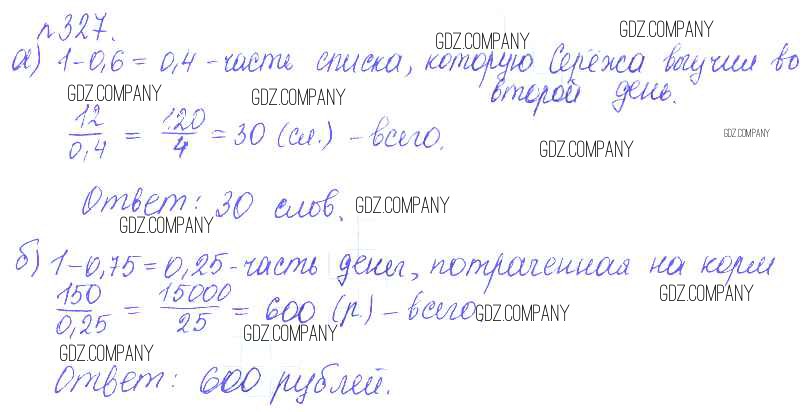 №327.
а) 1-0,6 = 0,4 - часть списка, которую Серёжа выучил во
второй день.
12/0,4 = 120/4 = 30 (сл.) - всего.
Ответ: 30 слов.
б) 1-0,75 = 0,25 - часть денег, потраченная на корм
150/0,25 = 15000/25 = 600 (р.) - всего
Ответ: 600 рублей.
GDZ.COMPANY
GDZ.COMPANY
GDZ.COMPANY
GDZ.COMPANY
GDZ.COMPANY
GDZ.COMPANY
GDZ.COMPANY
GDZ.COMPANY
GDZ.COMPANY
GDZ.COMPANY
GDZ.COMPANY
GDZ.COMPANY